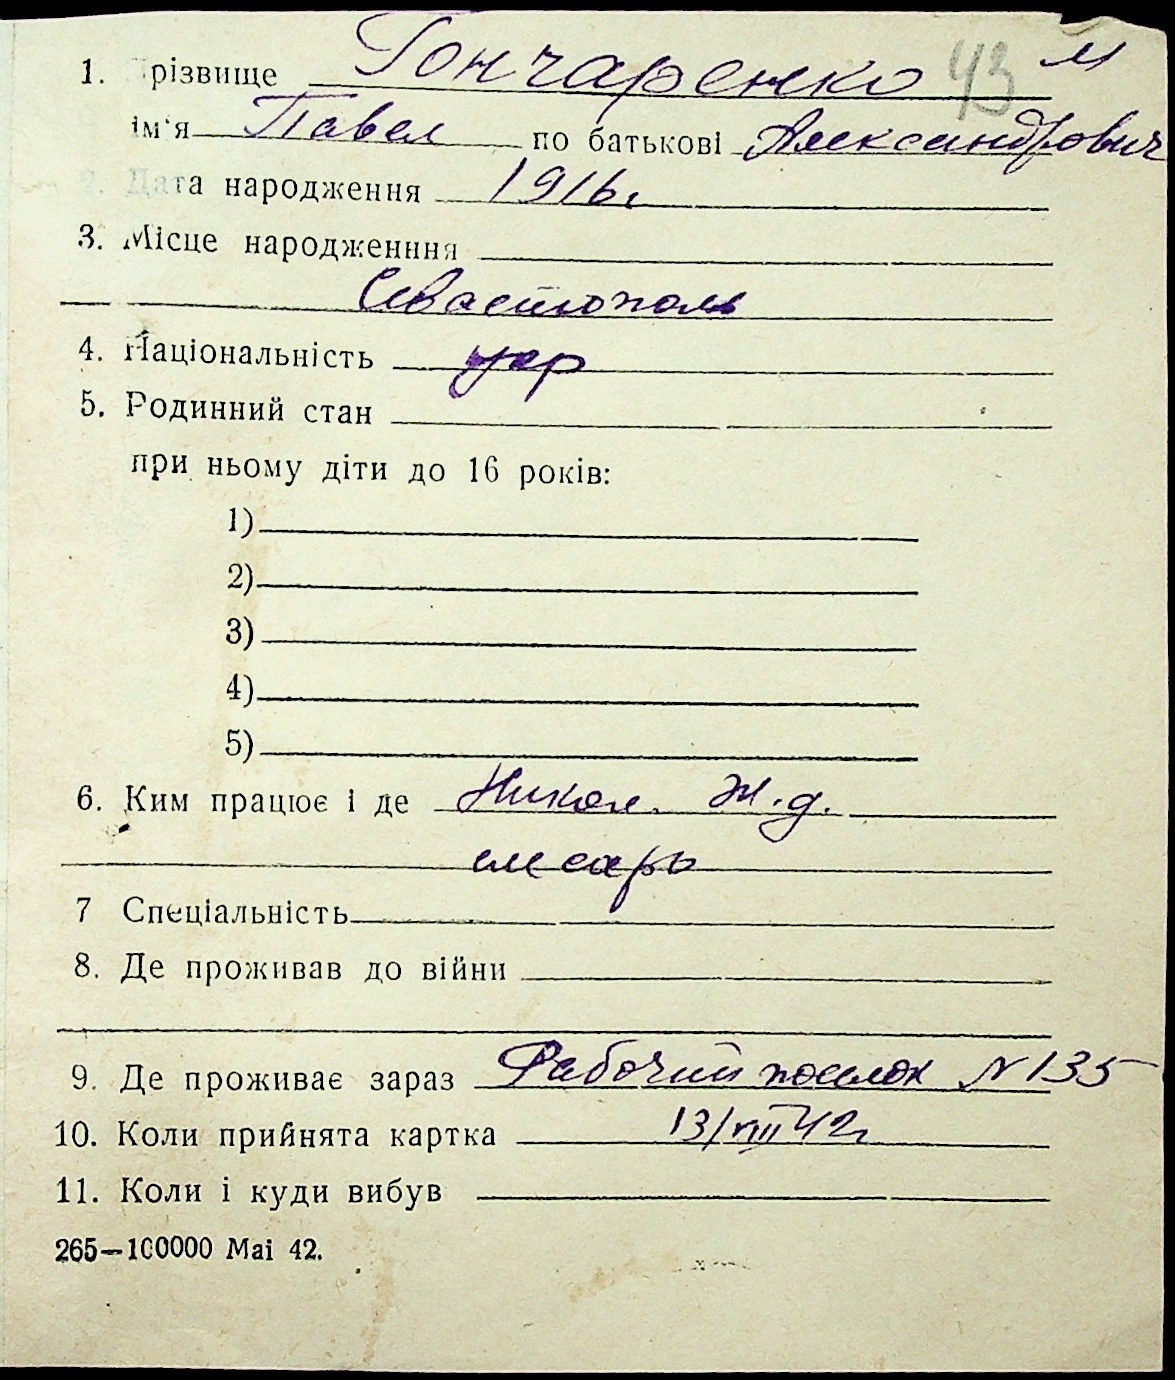 1. різвище Гончаренко 43 м
ім'я Павел по батькові Александрович
2. Дата народження 1916г.
3. Місце народженння
Севастополь
4. Національність укр
5. Родинний стан
при ньому діти до 16 років:
1)
2)
3)
4)
5)
6. Ким працює і де Никол. ж.д.
слесарь
7 Спеціальність
8. Де проживав до війни
9. Де проживає зараз Рабочий поселок N 135
10. Коли прийнята картка 13/VIII 42г
11. Коли і куди вибув
265—100000 Mai 42.